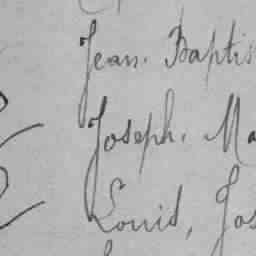 Jean. Baptis
Joseph. Ma
Louis, Jos